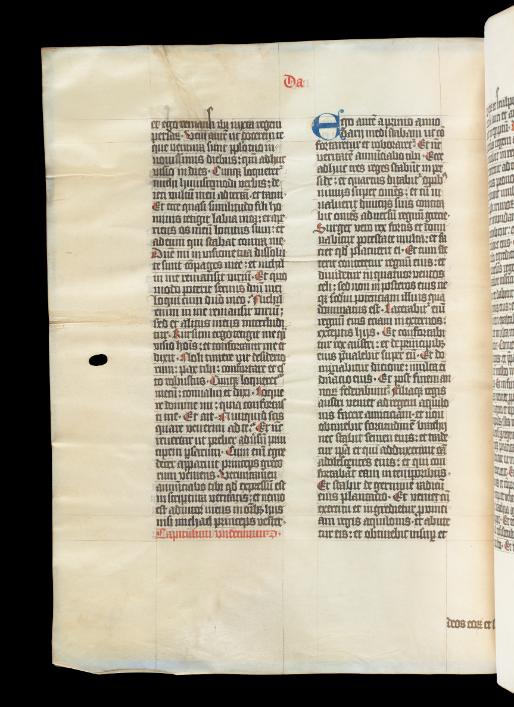 Da
et ego remansi ibi iuxta regem
persar. Veni autē ut docerem te
que ventura sunt pplo tuo in
nouissimis diebus: qm̄ adhuc
visio in dies. Cumq; loqueretᷣ
michi huiuscemodi verbis: de
ieci vultū meū ad terrā: et tacui.
Et ecce quasi similitudo filii ho
minis tetigit labia mea: et ape
riens os meū locutus sum: et
ad eum qui stabat contra me.
Dn̄e mi in visione tua dissolu
te sunt cōpages mee: et nichil
in me remansit viriū. Et quo
modo poterit seruus dn̄i mei
loqui cum dn̄o meo: Nichil
enim in me remansit viriū:
sed et alitus meus intercludi
tur. Rursum ergo tetigit me q̄i
visio hoīs: et confortauit me et
dixit. Noli timere vir desiderio
rum: pax tibi: confortare et es
to robustus. Cumq; loqueretᷣ
mecū: conualui et dixi. Loque
re domine mi: quia confortas
ti me. Et ait. Nunquid scis
quare venerim ad te: Et nūc
reuertar ut prelier aduersū prin
cipem psarum. Cum enī egre
derer apparuit princeps greco
rum veniens. Verumtamen
annunciabo tibi qd̄ expressū est
in scriptura veritatis: et nemo
est adiutor meus in oībꝫ hys
nisi michael princeps vester.
Capitulum vndecimum.
Ego autē a primo anno
Darij medi stabam ut cō
fortaretur et roboraretᷣ. Et nūc
veritatē annūciabo tibi. Ecce
adhuc tres reges stabūt in per
side: et quartus ditabitᷣ opibꝫ
nimijs super om̄es: et cū in
ualuerit diuicijs suis concita
bit om̄es aduersū regnū grecie.
Surget vero rex fortis et domi
nabitur potestate multa: et fa
ciet qd̄ placuerit ei. Et cum ste
terit conteretur regnū eius: et
diuidetur in quatuor ventos
celi: sed non in posteros eius ne
q; scdm̄ potenciam illius qua
dominatus est. Lacerabitᷣ enī
regnū eius eciam in externos:
exceptis hijs. Et confortabi
tur rex austri: et de principibꝫ
eius p̄ualebit super eū. Et do
minabitur dicione: multa eī
dn̄acio eius. Et post finem an
norū federabunt: filiaq; regis
austri veniet ad regem aquilo
nis facere amiciciam: et non
obtinebit fortitudinē brachij
nec stabit semen eius: et trade
tur ip̄a et qui adduxerunt eā
adolescentes eius: et qui con
fortabat eam in temporibus.
Et stabit de germine radicū
eius plantacio. Et veniet cū
exercitu et ingredietur prouin
ciam regis aquilonis: et abute
tur eis: et obtinebit insuꝑ et
deos eoꝝ et